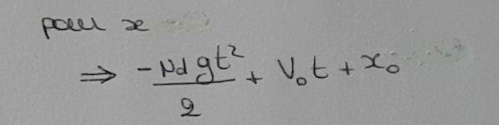 pour x
⇒ -μd gt²/2 + V₀t + x₀